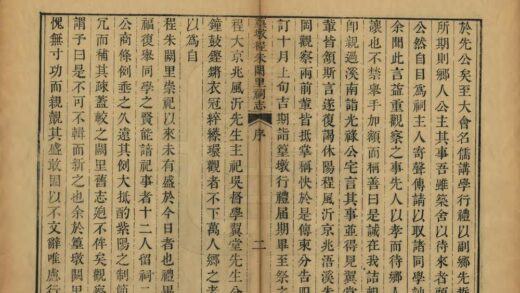 於先公矣至大會名儒講學行禮以副鄉先哲
所期則鄉人公主其事吾雖築舍以待來者
公然自目爲祠主人寄聲傳請以取諸同學
余聞此言益重觀察之事先人以孝而待鄉人
讓也不禁舉手加額而稱善曰是誠在我詰朝
卽親過溪南詣光祿公宅言其事並得見翼堂
輩皆領斯言遂復謁休陽程風沂京兆浯溪朱
岡觀察兩前輩皆抵掌稱快於是傳柬分告四
訂十月上旬吉期詣篁墩行禮屆期畢至祭之
篁墩程朱闕里祠志
序
二
程大京兆風沂先生主祀吳督學翼堂先生
鐘鼓鏗鏘衣冠綷縩環觀者不下萬人鄉之耆
以爲自
程朱闕里崇祀以來未有盛於今日者也禮畢
福復舉同學之賢能請祀事者十二人留祠二
公商條例垂之久遠其例大抵酌紫陽之制節
冗而補其疎蓋較之闕里舊志迥不侔矣觀察
謂子曰是不可不輯而新之也余於篁墩闕里
愧無寸功而親覩其盛敢固以不文辭唯虔行